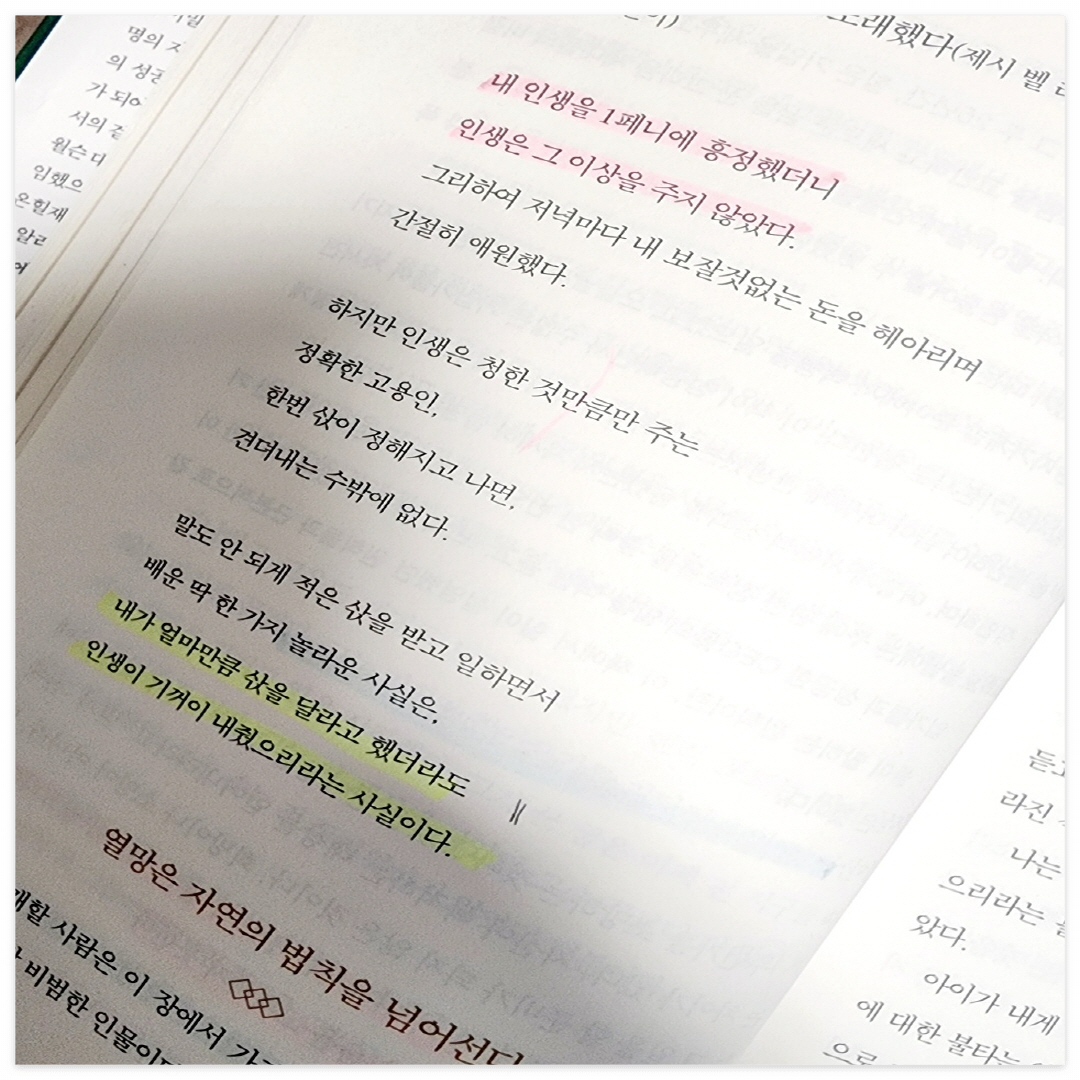 명의
의 성공
가 되어
서의
윌슨 더
임했으
온 힐 재
알리
어
노래했다(제시 벨
내 인생을 1페니에 흥정했더니
인생은 그 이상을 주지 않았다.
그리하여 저녁마다 내 보잘것없는 돈을 헤아리며
간절히 애원했다.
하지만 인생은 청한 것만큼만 주는
정확한 고용인,
한번 삯이 정해지고 나면,
견뎌내는 수밖에 없다.
말도 안 되게 적은 삯을 받고 일하면서
배운 딱 한 가지 놀라운 사실은,
내가 얼마만큼 삯을 달라고 했더라도
인생이 기꺼이 내줬으리라는 사실이다.
열망은 자연의 법칙을 넘어선다
개할 사람은 이 장에서
비범한 인물이다
듣고
라진
나는
으리라는
았다.
아이가 내게
에 대한 불타는
으로